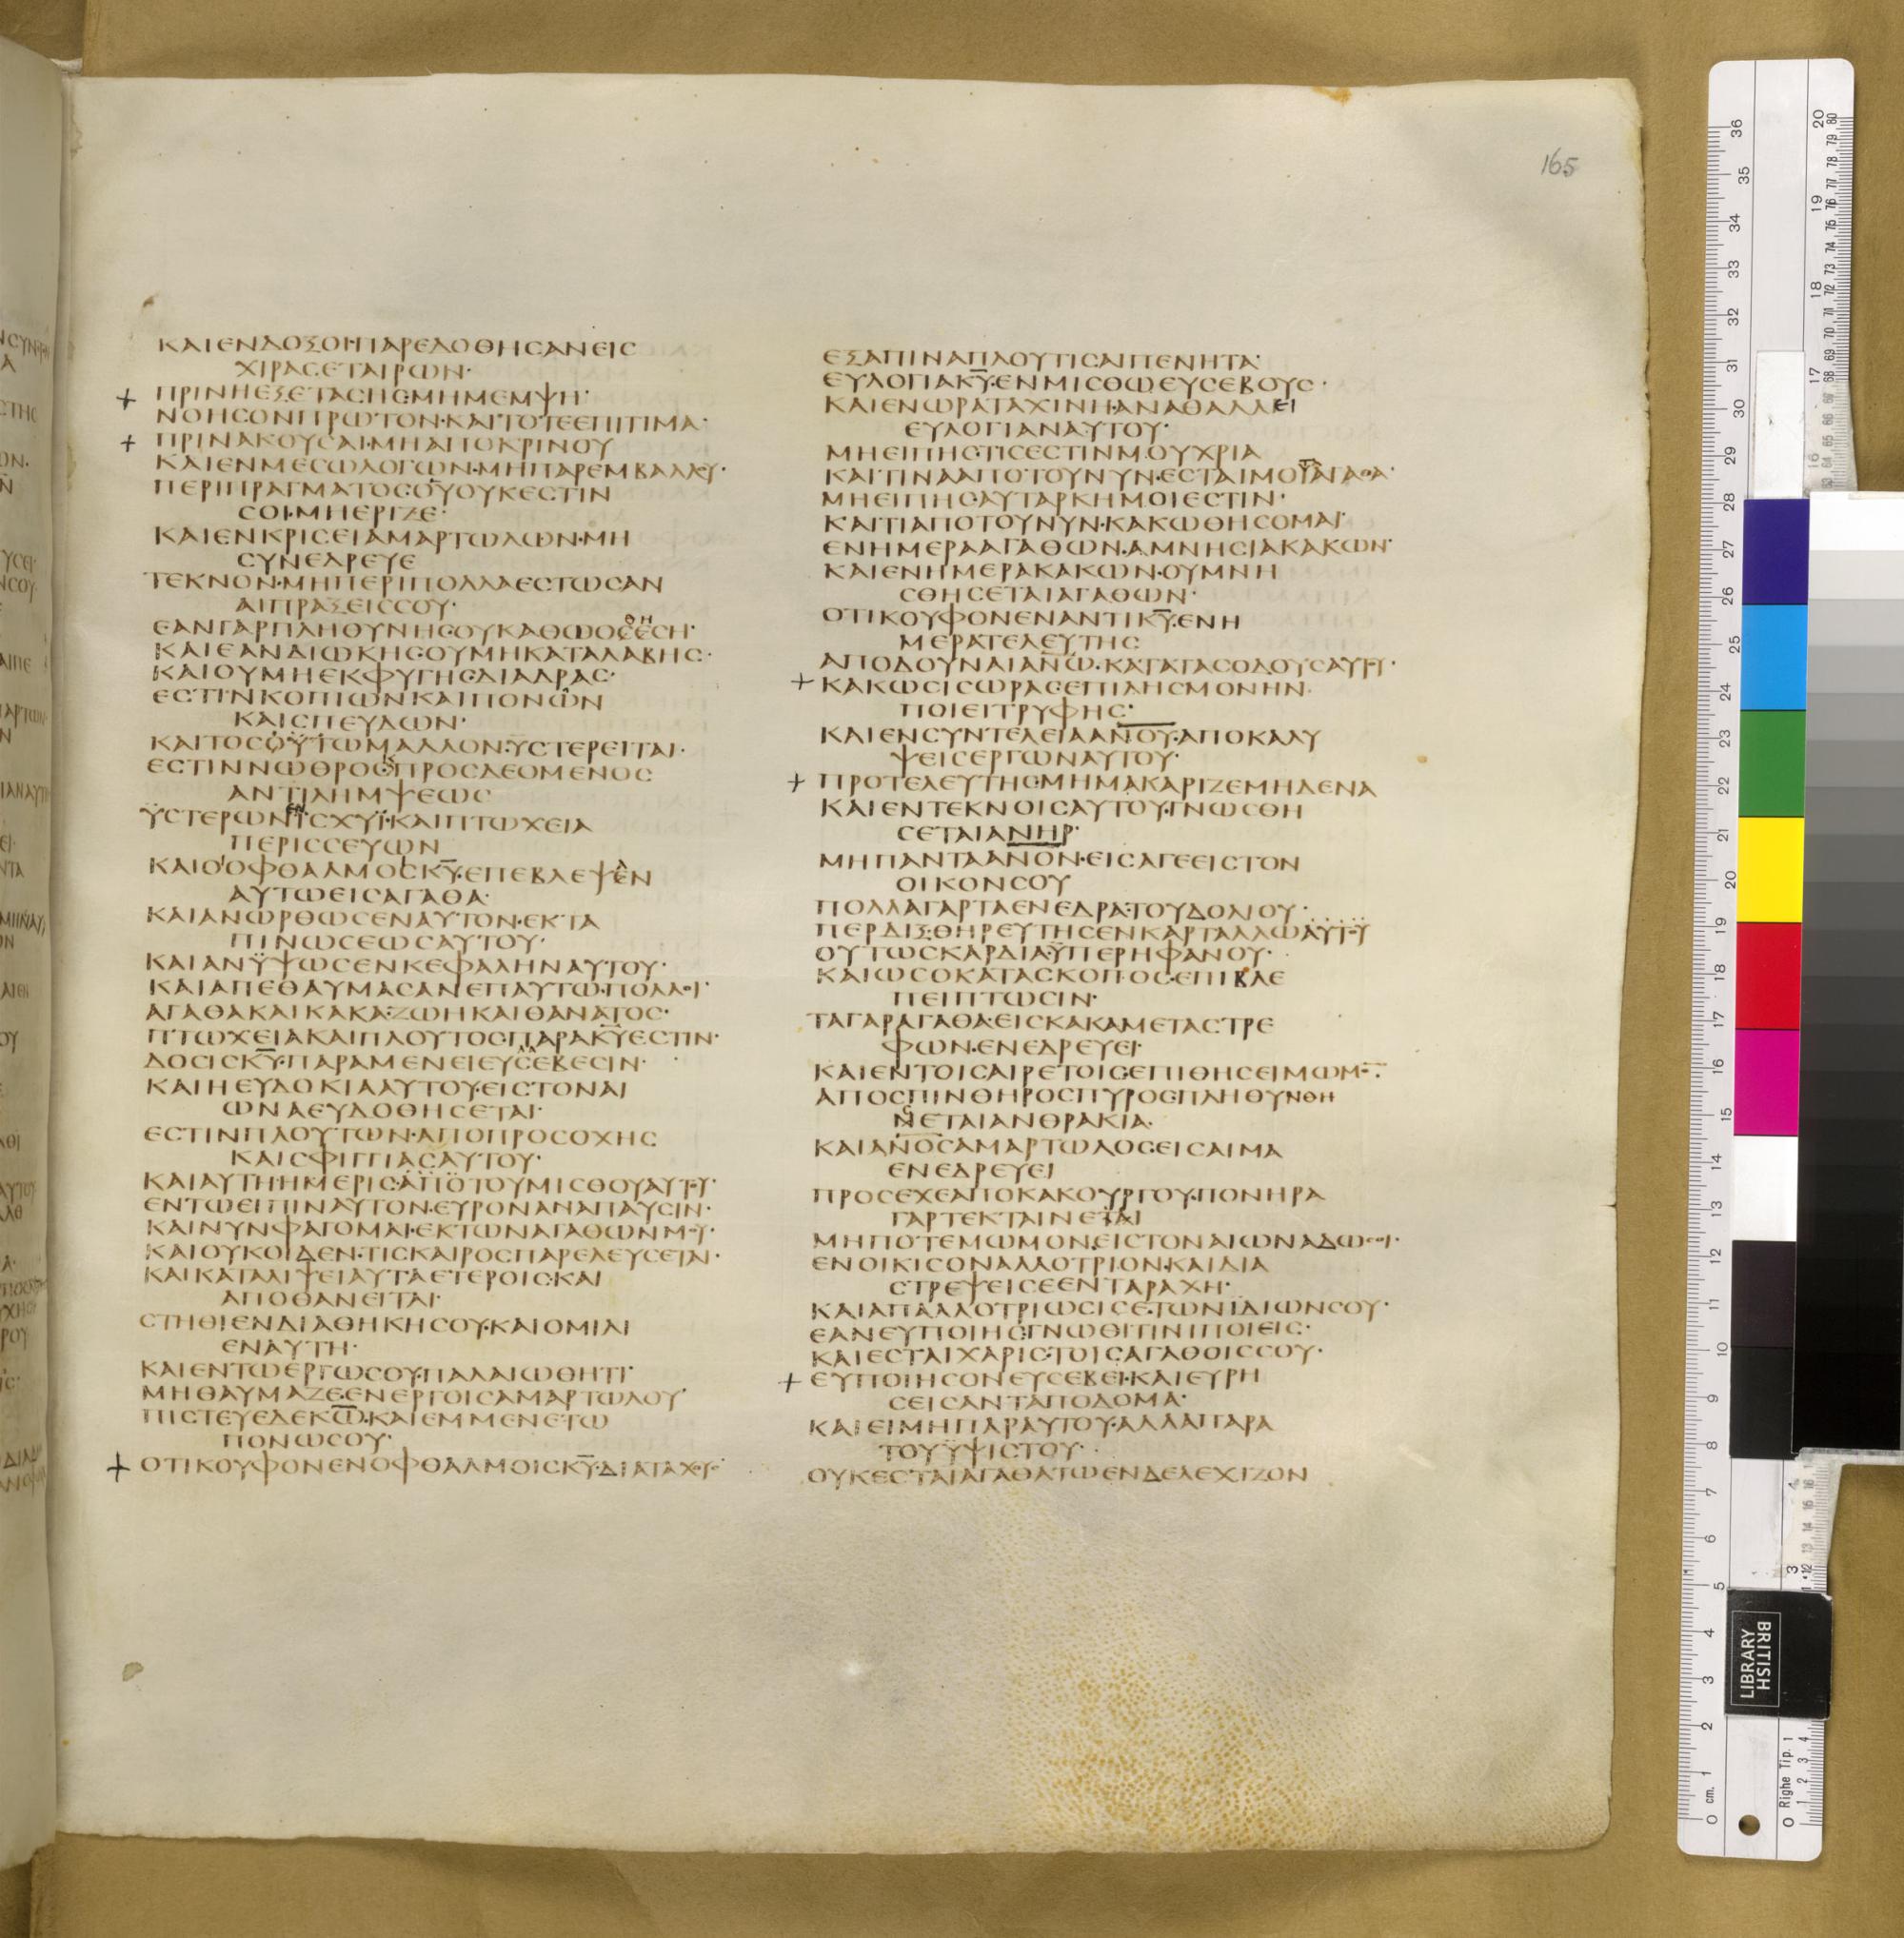 165
ΚΑΙΕΝΔΟΞΟΙΠΑΡΕΔΟΘΗCΑΝΕΙC
ΧΙΡΑCΕΤΑΙΡΩΝ·
ΠΡΙΝΗΕΞΕΤΑCΗC·ΜΗΜΕΜΨΗ·
ΝΟΗCΟΝΠΡΩΤΟΝ·ΚΑΙΤΟΤΕΕΠΙΤΙΜΑ·
ΠΡΙΝΑΚΟΥCΑΙ·ΜΗΑΠΟΚΡΙΝΟΥ
ΚΑΙΕΝΜΕCΩΛΟΓΩΝ·ΜΗΠΑΡΕΜΒΑΛΛΟΥ·
ΠΕΡΙΠΡΑΓΜΑΤΟCΟΥΟΥΚΕCΤΙΝ
CΟΙ·ΜΗΕΡΙΖΕ·
ΚΑΙΕΝΚΡΙCΕΙΑΜΑΡΤΩΛΩΝ·ΜΗ
CΥΝΕΔΡΕΥΕ
ΤΕΚΝΟΝ·ΜΗΠΕΡΙΠΟΛΛΑΕCΤΩCΑΝ
ΑΙΠΡΑΞΕΙCCΟΥ·
ΕΑΝΓΑΡΠΛΗΘΥΝΗC·ΟΥΚΑΘΩΟCΕCΗ·
ΚΑΙΕΑΝΔΙΩΚΗC·ΟΥΜΗΚΑΤΑΛΑΒΗC·
ΚΑΙΟΥΜΗΕΚΦΥΓΗC·ΔΙΑΔΡΑC·
ΕCΤΙΝΚΟΠΙΩΝΚΑΙΠΟΝΩΝ
ΚΑΙCΠΕΥΔΩΝ·
ΚΑΙΤΟCΟΥΤΩΜΑΛΛΟΝ·ΥCΤΕΡΕΙΤΑΙ·
ΕCΤΙΝΝΩΘΡΟCΠΡΟCΔΕΟΜΕΝΟC
ΑΝΤΙΛΗΜΨΕΩC
ΫCΤΕΡΩΝΙCΧΥΪ·ΚΑΙΠΤΩΧΕΙΑ
ΠΕΡΙCCΕΥΩΝ
ΚΑΙΟΟΦΘΑΛΜΟCΚΥ·ΕΠΕΒΛΕΨΕΝ
ΑΥΤΩΕΙCΑΓΑΘΑ·
ΚΑΙΑΝΩΡΘΩCΕΝΑΥΤΟΝ·ΕΚΤΑ
ΠΙΝΩCΕΩCΑΥΤΟΥ·
ΚΑΙΑΝΫΨΩCΕΝΚΕΦΑΛΗΝΑΥΤΟΥ·
ΚΑΙΑΠΕΘΑΥΜΑCΑΝΕΠΑΥΤΩ·ΠΟΛΛΟΙ·
ΑΓΑΘΑΚΑΙΚΑΚΑ·ΖΩΗΚΑΙΘΑΝΑΤΟC·
ΠΤΩΧΕΙΑΚΑΙΠΛΟΥΤΟC·ΠΑΡΑΚΥΕCΤΙΝ·
ΔΟCΙCΚΥ·ΠΑΡΑΜΕΝΕΙΕΥCΕΒΕCΙΝ·
ΚΑΙΗΕΥΔΟΚΙΑΑΥΤΟΥ·ΕΙCΤΟΝΑΙ
ΩΝΑΕΥΔΟΘΗCΕΤΑΙ·
ΕCΤΙΝΠΛΟΥΤΩΝ·ΑΠΟΠΡΟCΟΧΗC
ΚΑΙCΦΙΓΓΙΑCΑΥΤΟΥ·
ΚΑΙΑΥΤΗΗΜΕΡΙC·ΑΠΟΤΟΥΜΙCΘΟΥΑΥΤΟΥ·
ΕΝΤΩΕΙΠΙΝΑΥΤΟΝ·ΕΥΡΟΝΑΝΑΠΑΥCΙΝ·
ΚΑΙΝΥΝΦΑΓΟΜΑΙ·ΕΚΤΩΝΑΓΑΘΩΝΜΟΥ·
ΚΑΙΟΥΚΟΙΔΕΝ·ΤΙCΚΑΙΡΟCΠΑΡΕΛΕΥCΕΤΑΙ·
ΚΑΙΚΑΤΑΛΙΨΕΙΑΥΤΑΕΤΕΡΟΙC·ΚΑΙ
ΑΠΟΘΑΝΕΙΤΑΙ·
CΤΗΘΙΕΝΔΙΑΘΗΚΗCΟΥ·ΚΑΙΟΜΙΛΙ
ΕΝΑΥΤΗ·
ΚΑΙΕΝΤΩΕΡΓΩCΟΥ·ΠΑΛΑΙΩΘΗΤΙ·
ΜΗΘΑΥΜΑΖΕ·ΕΝΕΡΓΟΙCΑΜΑΡΤΩΛΟΥ·
ΠΙCΤΕΥΕΔΕΚΩ·ΚΑΙΕΜΜΕΝΕΤΩ
ΠΟΝΩCΟΥ·
ΟΤΙΚΟΥΦΟΝΕΝΟΦΘΑΛΜΟΙCΚΥ·ΔΙΑΤΑΧΟΥC·
ΕΞΑΠΙΝΑΠΛΟΥΤΙCΑΙΠΕΝΗΤΑ·
ΕΥΛΟΓΙΑΚΥ·ΕΝΜΙCΘΩΕΥCΕΒΟΥC·
ΚΑΙΕΝΩΡΑΤΑΧΙΝΗ·ΑΝΑΘΑΛΛΕΙ
ΕΥΛΟΓΙΑΝΑΥΤΟΥ·
ΜΗΕΙΠΗC·ΤΙCΕCΤΙΝΜΟΥΧΡΙΑ
ΚΑΙΤΙΝΑΑΠΟΤΟΥΝΥΝ·ΕCΤΑΙΜΟΥΑΓΑΘΑ·
ΜΗΕΙΠΗC·ΑΥΤΑΡΚΗΜΟΙΕCΤΙΝ·
ΚΑΙΤΙΑΠΟΤΟΥΝΥΝ·ΚΑΚΩΘΗCΟΜΑΙ·
ΕΝΗΜΕΡΑΑΓΑΘΩΝ·ΑΜΝΗCΙΑΚΑΚΩΝ·
ΚΑΙΕΝΗΜΕΡΑΚΑΚΩΝ·ΟΥΜΝΗ
CΘΗCΕΤΑΙΑΓΑΘΩΝ·
ΟΤΙΚΟΥΦΟΝΕΝΑΝΤΙΚΥ·ΕΝΗ
ΜΕΡΑΤΕΛΕΥΤΗC
ΑΠΟΔΟΥΝΑΙΑΝΩ·ΚΑΤΑΤΑCΟΔΟΥCΑΥΤΟΥ·
ΚΑΚΩCΙCΩΡΑC·ΕΠΙΛΗCΜΟΝΗΝ·
ΠΟΙΕΙΤΡΥΦΗC·
ΚΑΙΕΝCΥΝΤΕΛΕΙΑΑΝΟΥ·ΑΠΟΚΑΛΥ
ΨΕΙCΕΡΓΩΝΑΥΤΟΥ·
ΠΡΟΤΕΛΕΥΤΗC·ΜΗΜΑΚΑΡΙΖΕΜΗΔΕΝΑ
ΚΑΙΕΝΤΕΚΝΟΙCΑΥΤΟΥ·ΓΝΩCΘΗ
CΕΤΑΙΑΝΗΡ·
ΜΗΠΑΝΤΑΑΝΟΝ·ΕΙCΑΓΕΕΙCΤΟΝ
ΟΙΚΟΝCΟΥ
ΠΟΛΛΑΓΑΡΤΑΕΝΕΔΡΑ·ΤΟΥΔΟΛΙΟΥ·
ΠΕΡΔΙΞ·ΘΗΡΕΥΤΗCΕΝΚΑΡΤΑΛΛΩΑΥΤΟΥ
ΟΥΤΩCΚΑΡΔΙΑΫΠΕΡΗΦΑΝΟΥ·
ΚΑΙΩCΟΚΑΤΑCΚΟΠΟC·ΕΠΙΒΛΕ
ΠΕΙΠΤΩCΙΝ·
ΤΑΓΑΡΑΓΑΘΑ·ΕΙCΚΑΚΑΜΕΤΑCΤΡΕ
ΦΩΝ·ΕΝΕΔΡΕΥΕΙ·
ΚΑΙΕΝΤΟΙCΑΙΡΕΤΟΙC·ΕΠΙΘΗCΕΙΜΩΜΟΝ·
ΑΠΟCΠΙΝΘΗΡΟCΠΥΡΟC·ΠΛΗΘΥΝΘΗ
ΝΕΤΑΙΑΝΘΡΑΚΙΑ·
ΚΑΙΑΝΟCΑΜΑΡΤΩΛΟC·ΕΙCΑΙΜΑ
ΕΝΕΔΡΕΥΕΙ
ΠΡΟCΕΧΕΑΠΟΚΑΚΟΥΡΓΟΥ·ΠΟΝΗΡΑ
ΓΑΡΤΕΚΤΑΙΝΕΤΑΙ
ΜΗΠΟΤΕΜΩΜΟΝ·ΕΙCΤΟΝΑΙΩΝΑΔΩCΕΙ·
ΕΝΟΙΚΙCΟΝΑΛΛΟΤΡΙΟΝ·ΚΑΙΔΙΑ
CΤΡΕΨΕΙCΕΕΝΤΑΡΑΧΗ·
ΚΑΙΑΠΑΛΛΟΤΡΙΩCΙCΕ·ΤΩΝΙΔΙΩΝCΟΥ·
ΕΑΝΕΥΠΟΙΗC·ΓΝΩΘΙΤΙΝΙΠΟΙΕΙC·
ΚΑΙΕCΤΑΙΧΑΡΙC·ΤΟΙCΑΓΑΘΟΙCCΟΥ·
ΕΥΠΟΙΗCΟΝΕΥCΕΒΕΙ·ΚΑΙΕΥΡΗ
CΕΙCΑΝΤΑΠΟΔΟΜΑ·
ΚΑΙΕΙΜΗΠΑΡΑΥΤΟΥ·ΑΛΛΑΠΑΡΑ
ΤΟΥΫΨΙCΤΟΥ·
ΟΥΚΕCΤΑΙΑΓΑΘΑΤΩΕΝΔΕΛΕΧΙΖΟΝ
BRITISH
LIBRARY
0 cm. 1
0 Righe Tip. 1